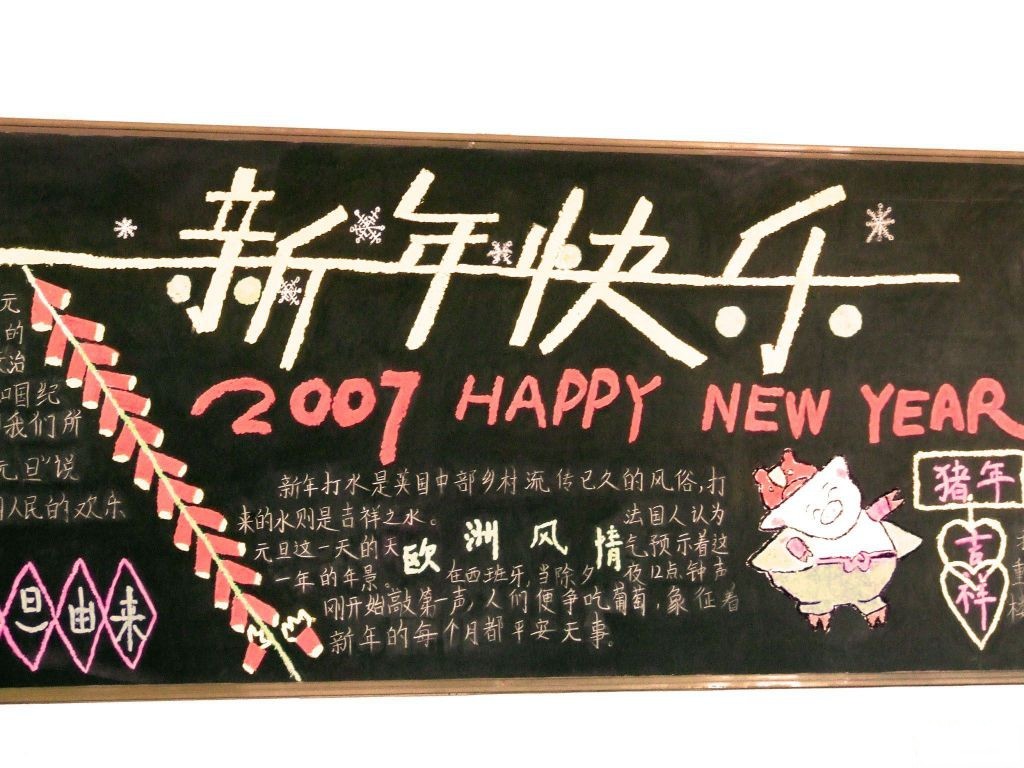 新年快乐
2007 HAPPY NEW YEAR
元
的
政治
和国纪
我们所
元旦"说
人民的欢乐
旦由来
新年打水是英国中部乡村流传已久的风俗,打
来的水则是吉祥之水。
欧洲风情
法国人认为
元旦这一天的天气预示着这
一年的年景。在西班牙,当除夕夜12点钟声
刚开始敲第一声,人们便争吃葡萄,象征着
新年的每个月都平安无事。
猪年
吉祥